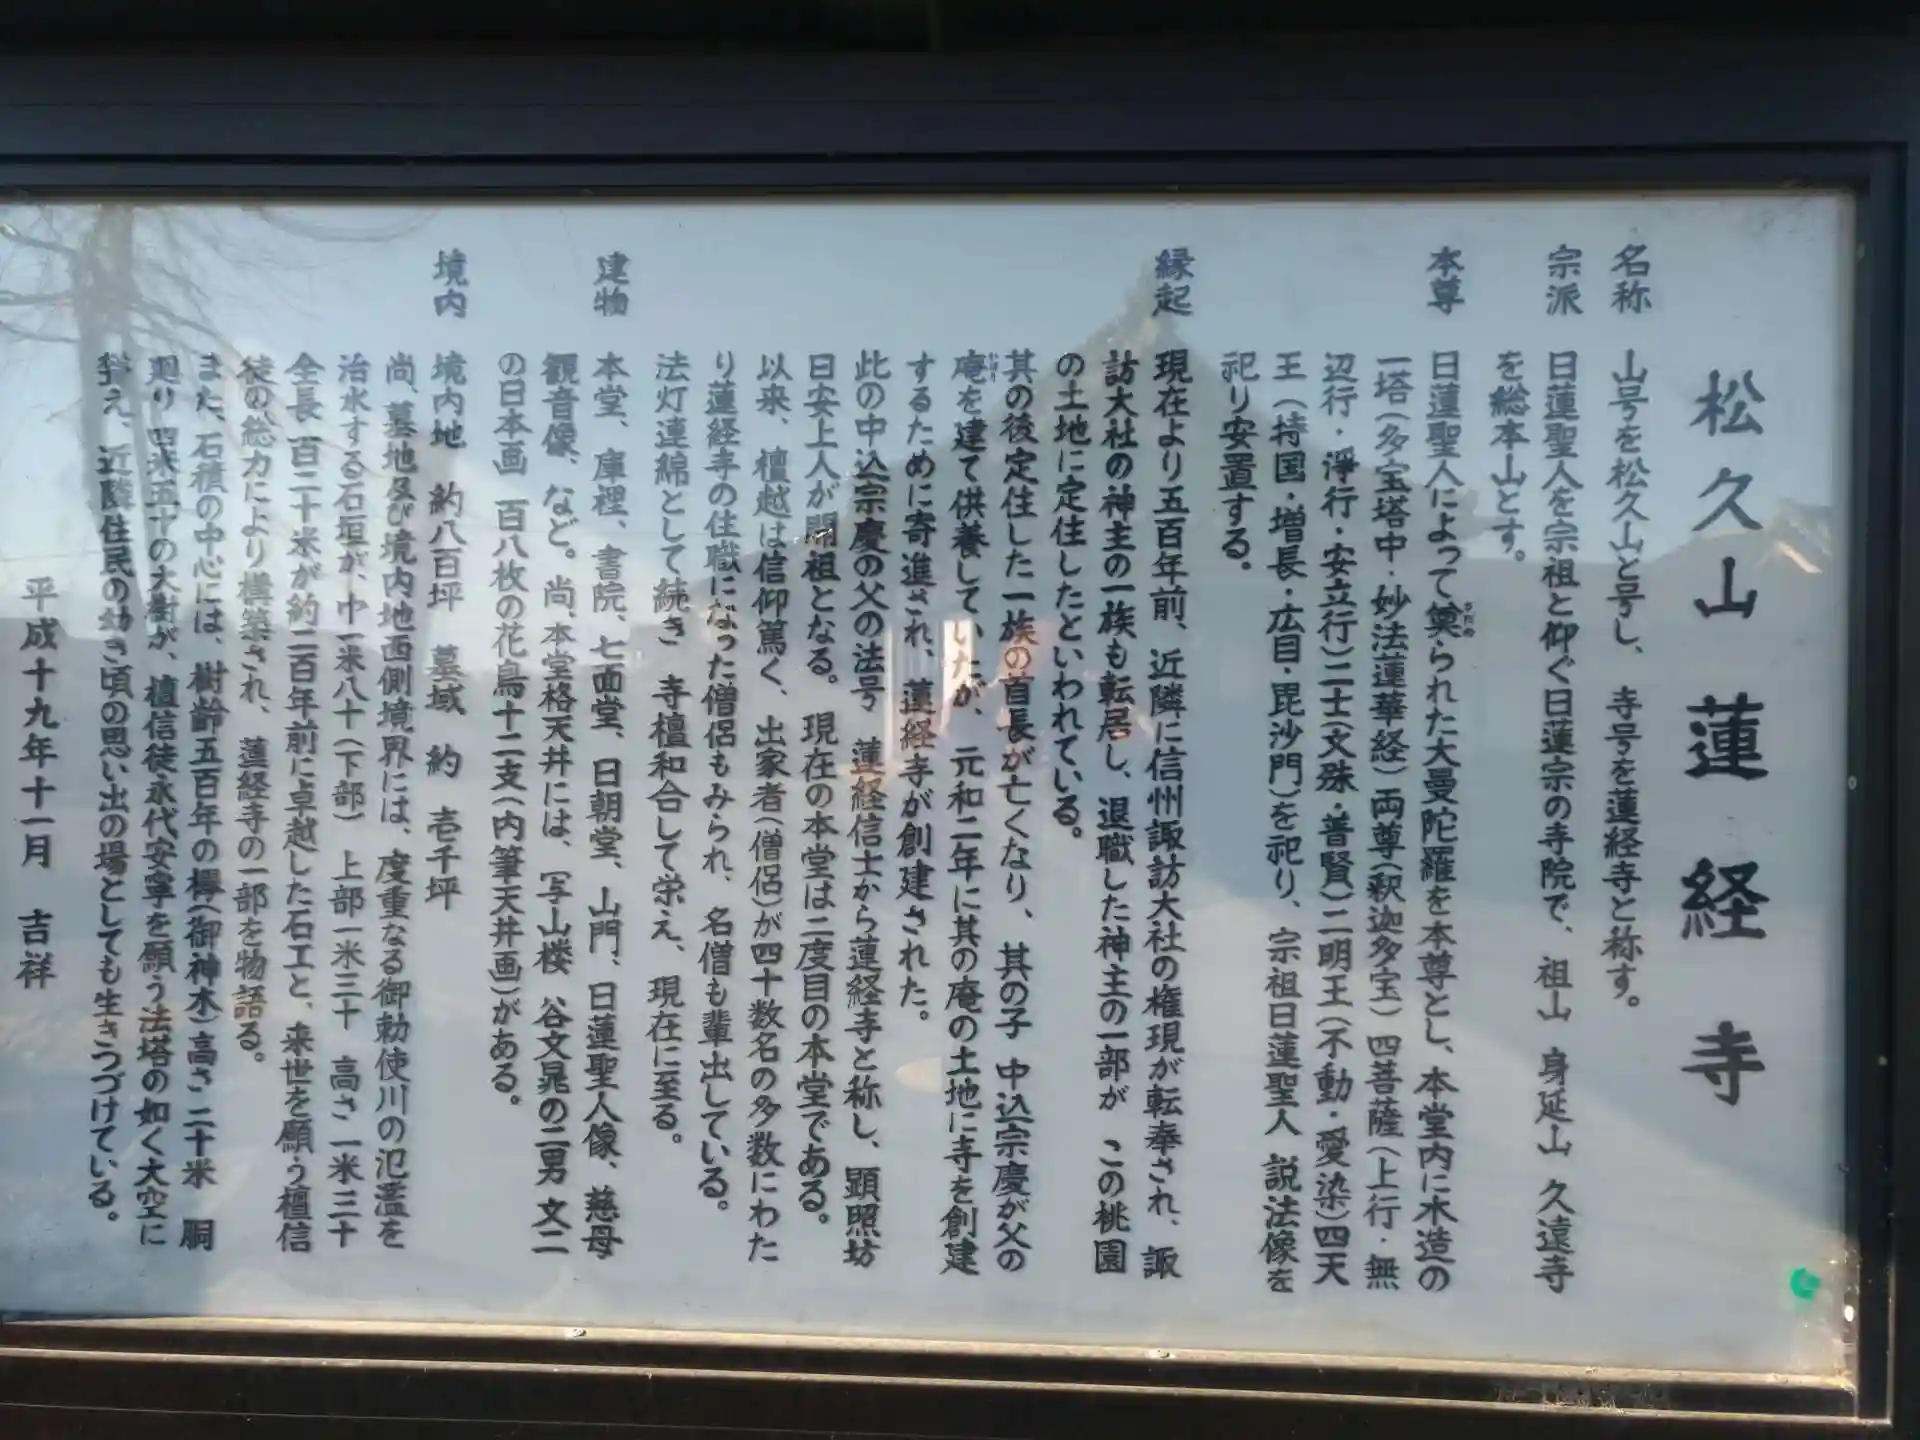 松久山 蓮経寺
名称 山号を松久山と号し、寺号を蓮経寺と称す。
宗派 日蓮聖人を宗祖と仰ぐ日蓮宗の寺院で、祖山 身延山 久遠寺
を総本山とす。
本尊 日蓮聖人によって奠られた大曼陀羅を本尊とし、本堂内に木造の
一塔(多宝塔中・妙法蓮華経)両尊(釈迦多宝)四菩薩(上行・無
辺行・浄行・安立行)二士(文殊・普賢)二明王(不動・愛染)四天
王(持国・増長・広目・毘沙門)を祀り、宗祖日蓮聖人 説法像を
祀り安置する。
縁起 現在より五百年前、近隣に信州諏訪大社の権現が転奉され、諏
訪大社の神主の一族も転居し、退職した神主の一部が この桃園
の土地に定住したといわれている。
其の後定住した一族の首長が亡くなり、其の子 中込宗慶が父の
庵を建て供養していたが、元和二年に其の庵の土地に寺を創建
するために寄進され、蓮経寺が創建された。
此の中込宗慶の父の法号 蓮経信士から蓮経寺と称し、顕照坊
日安上人が開祖となる。現在の本堂は二度目の本堂である。
以来、檀越は信仰篤く、出家者(僧侶)が四十数名の多数にわた
り蓮経寺の住職になった僧侶もみられ、名僧も輩出している。
法灯連綿として続き 寺檀和合して栄え、現在に至る。
建物 本堂、庫裡、書院、七面堂、日朝堂、山門、日蓮聖人像、慈母
観音像、など。尚、本堂格天井には、写山楼 谷文晁の二男 文二
の日本画 百八枚の花鳥十二支(内筆天井画)がある。
境内 境内地 約八百坪 墓域 約 壱千坪
尚、墓地及び境内地西側境界には、度重なる御勅使川の氾濫を
治水する石垣が、巾一米八十(下部)上部一米三十 高さ一米三十
全長 百二十米が約二百年前に卓越した石工と、来世を願う檀信
徒の総力により構築され、蓮経寺の一部を物語る。
また、石積の中心には、樹齢五百年の欅(御神木)高さ二十米 胴
廻り 四米五十の大樹が、檀信徒永代安寧を願う法塔の如く大空に
聳え、近隣住民の幼き頃の思い出の場としても生きつづけている。
平成十九年十一月 吉祥